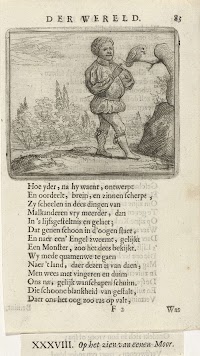 DER WERELD. 83
Hoe yder, na hy waent, ontwerpt
En oordeelt, breijn, en zinnen scherpt,
Zy scheelen in dees dingen van
Malkanderen vry meerder, dan
In 's lijfsgestelnis en gelaet;
Dat geenen schoon in d'oogen staet,
En naer een' Engel zweemt, gelijkt
Een Monster, zoo het dees bekijkt.
Wy mede quamen we te gaen
Naer 'tland, daer dezen is van daen,
Men wees met vingeren de
Ons na, gelijk wanschapen schuim.
Die schoone blankheid van gestalt,
Daer ons het oog zoo ras op valt,
F 2 Wat
XXXVIII. Op het zien van eenen Moor.